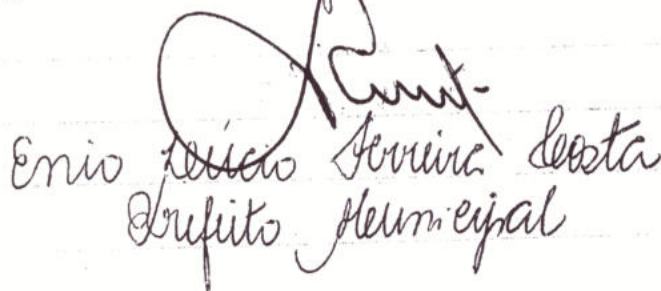 Enio Lúcio Ferreira Costa
Prefeito Municipal